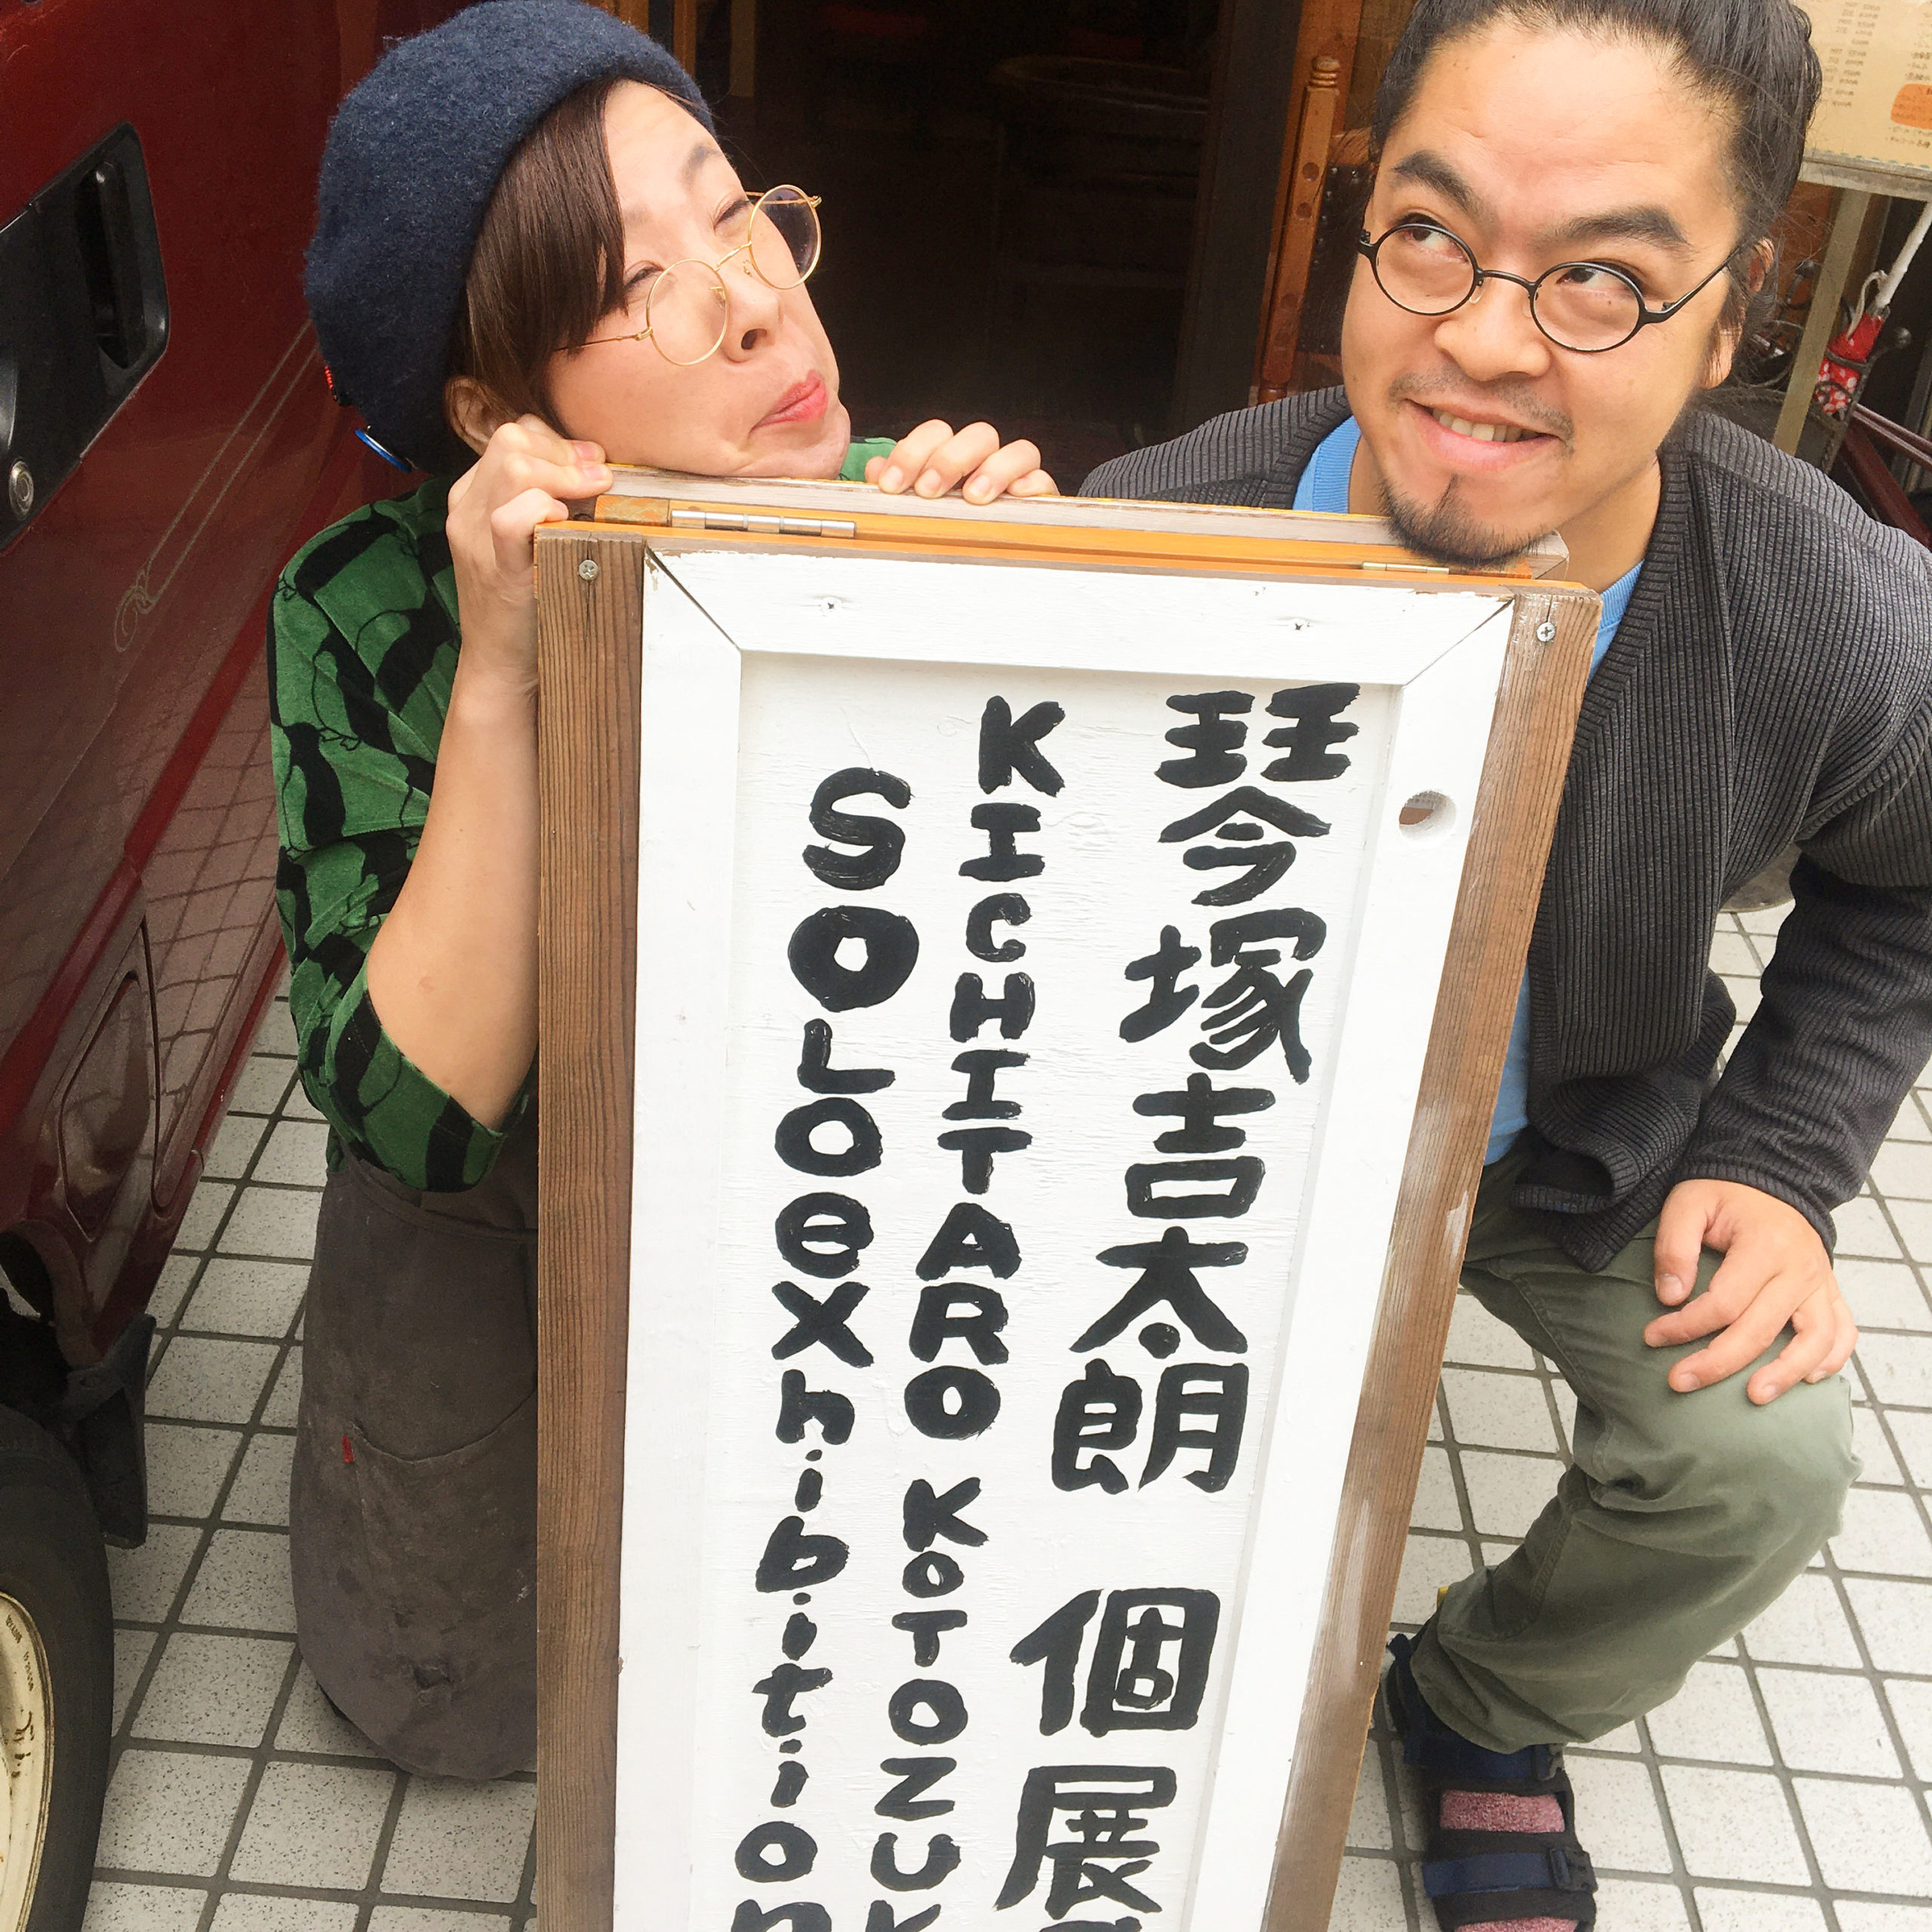 琴塚吉太朗 個展
KICHITARO KOTOZUK
SOLO exhibition